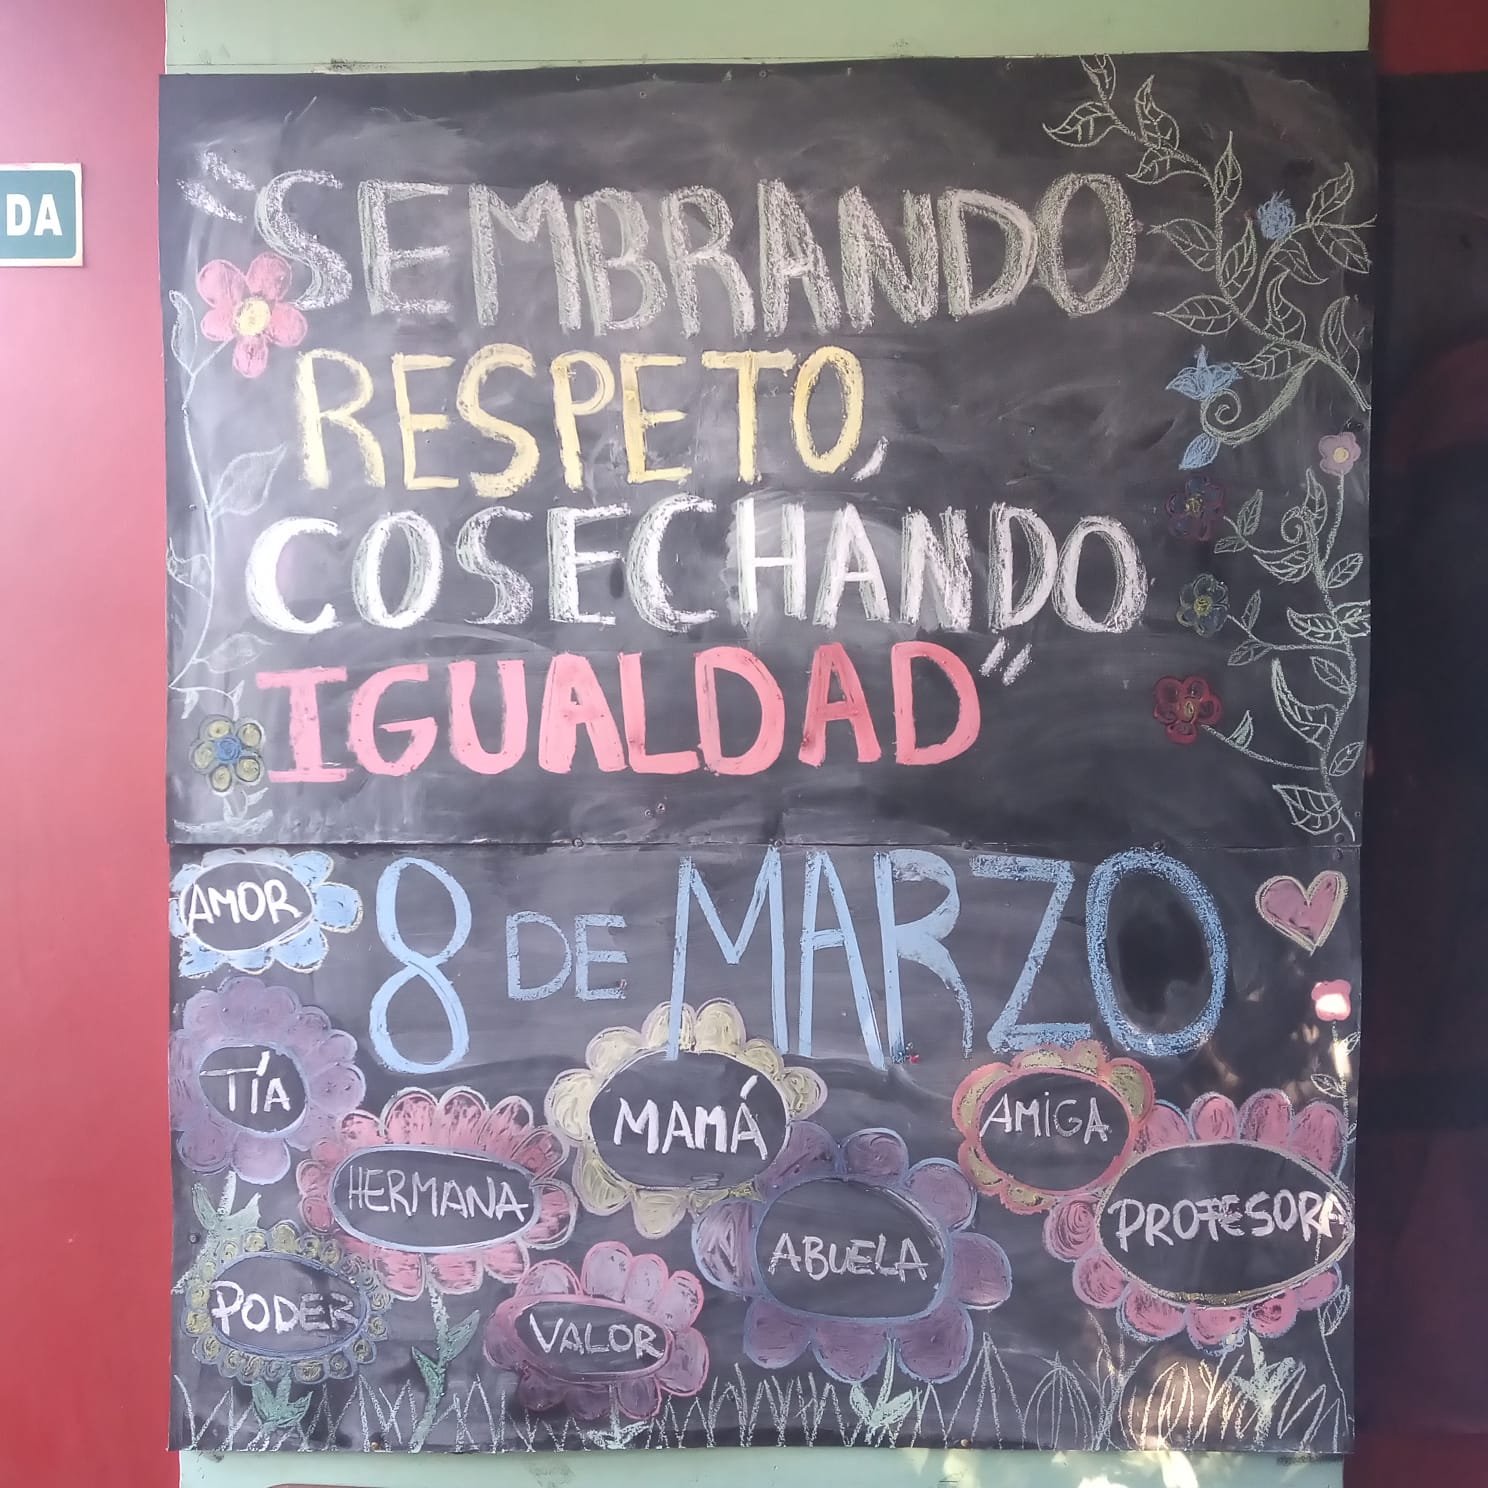 DA
"SEMBRANDO
RESPETO,
COSECHANDO
IGUALDAD"
8 DE MARZO
AMOR
TÍA
HERMANA
MAMÁ
AMIGA
PROFESORA
ABUELA
PODER
VALOR